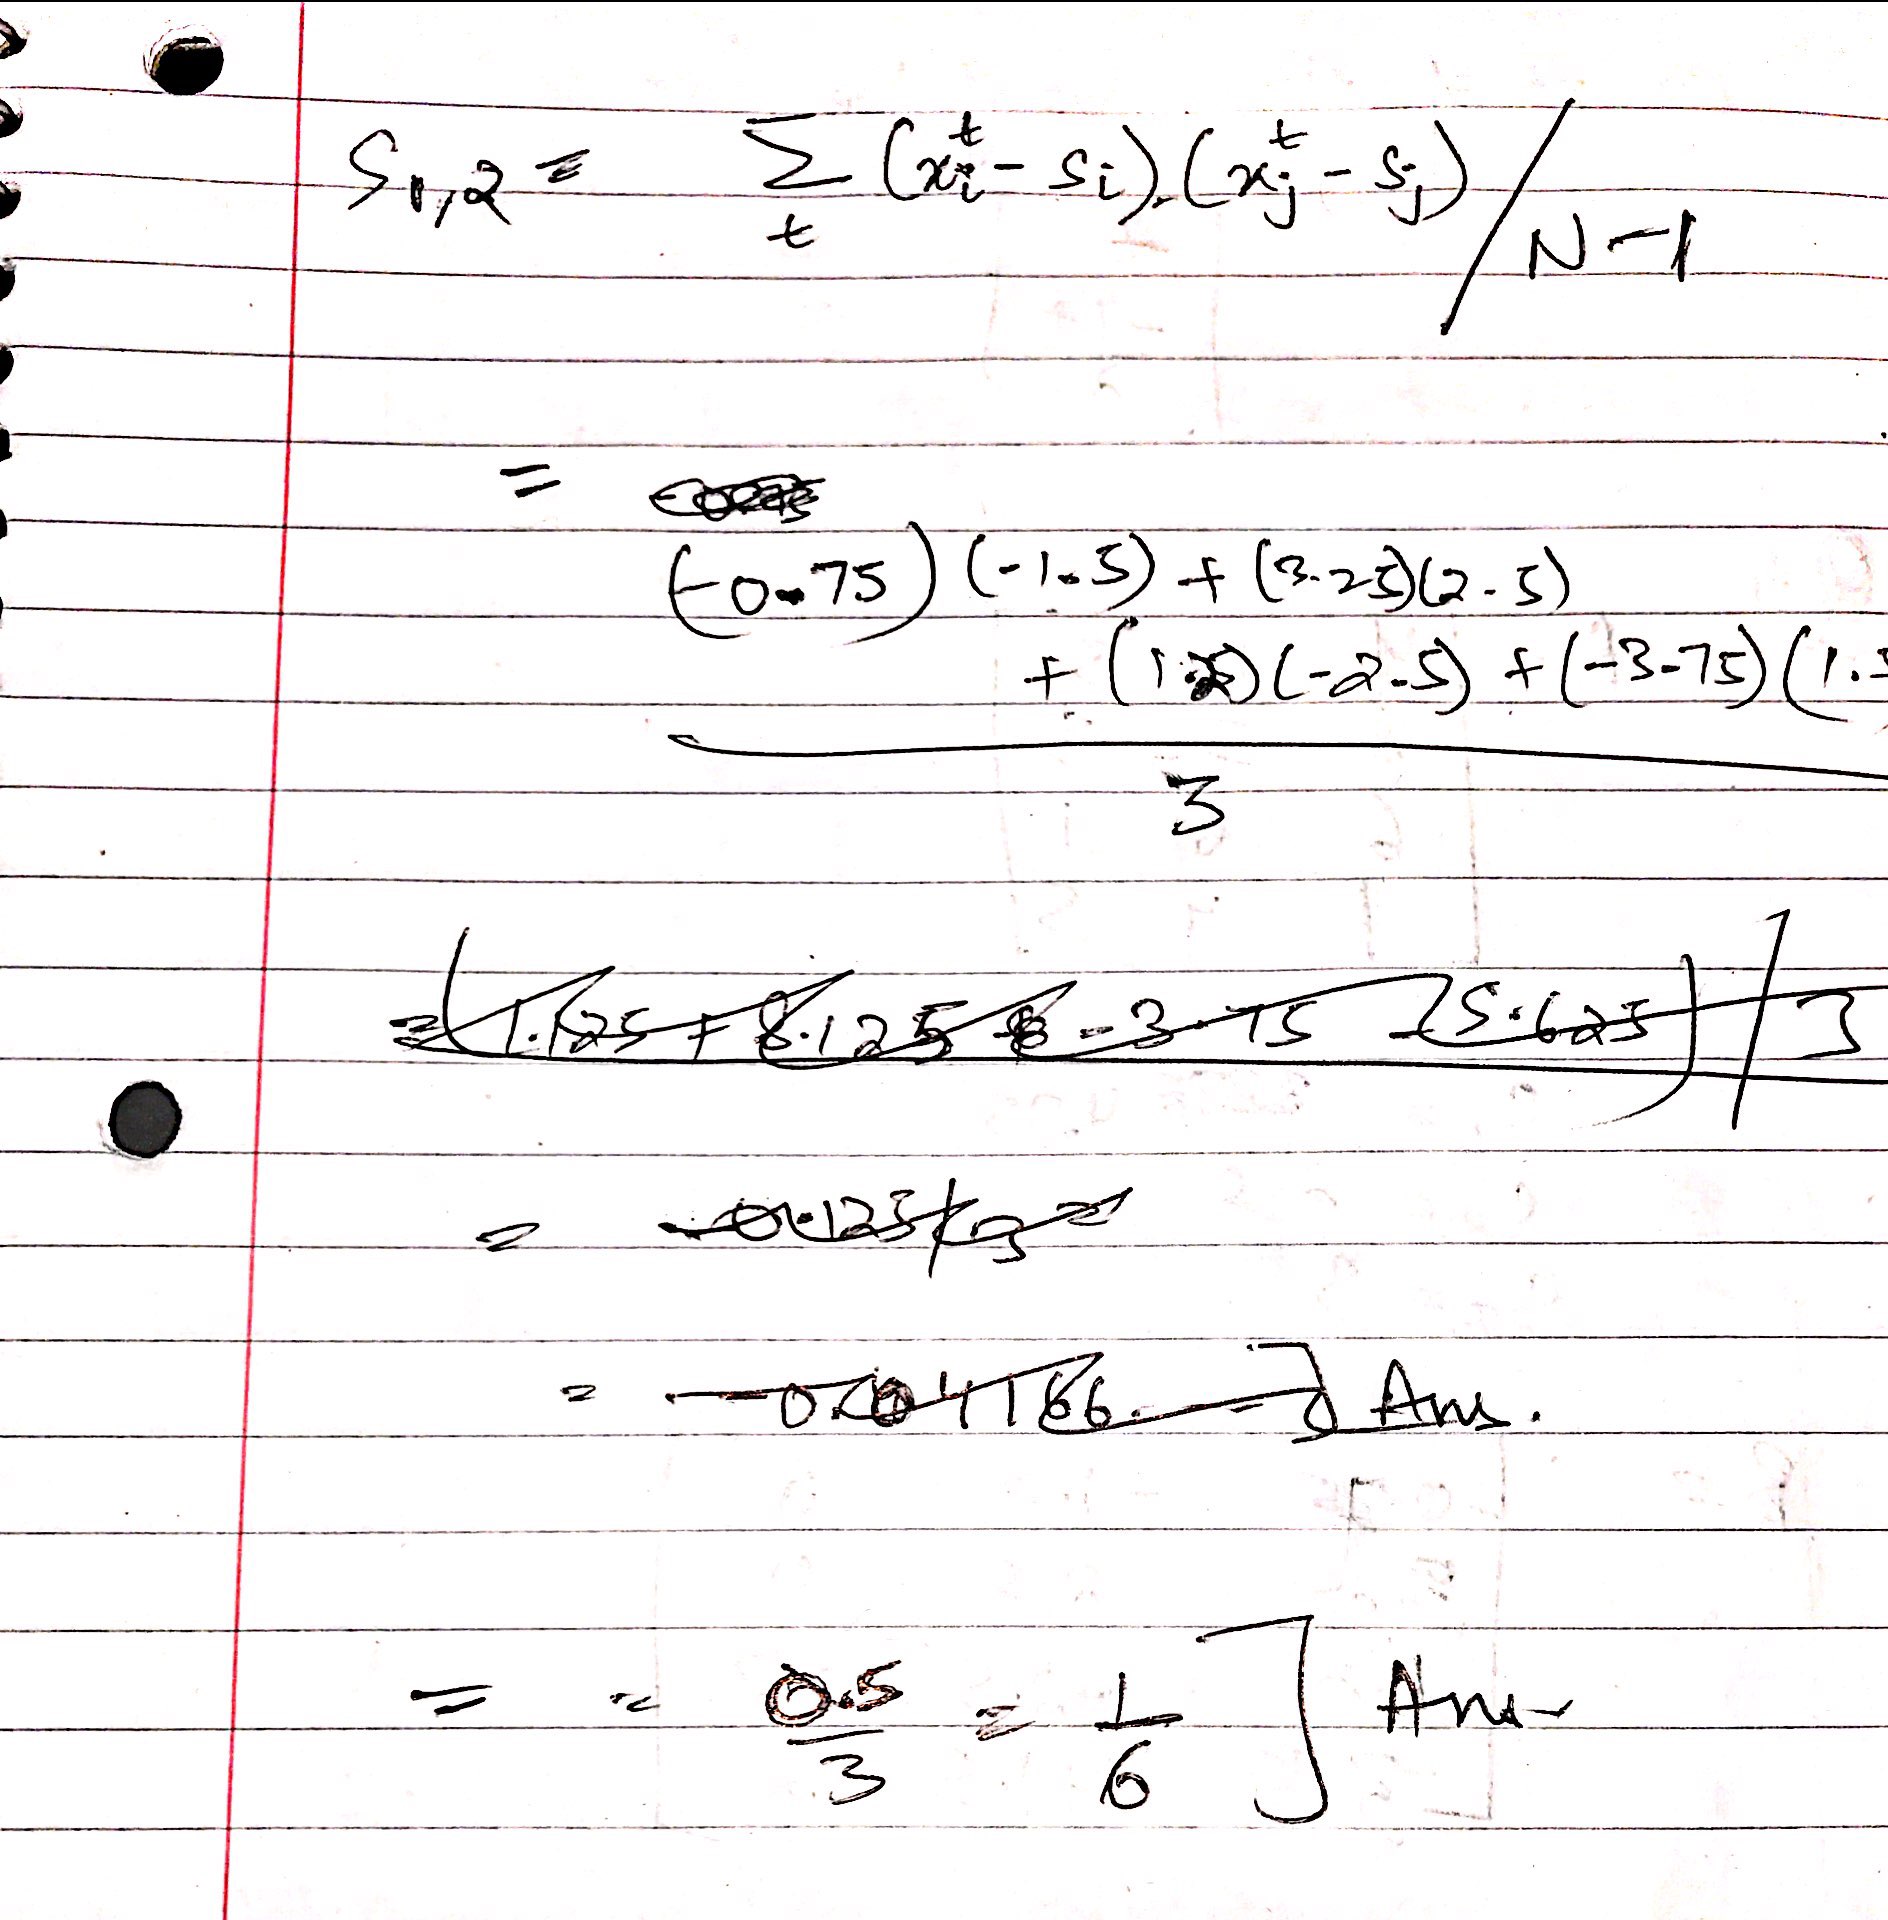 S₁,₂ = Σ (xᵢᵗ - Sᵢ).(xⱼᵗ - Sⱼ) / N-1
t
=
(-0.75) (-1.5) + (3.25)(2.5)
+ (1.25)(-2.5) + (-3.75) (1.5
3
= (1.125 + 8.125 - 3.75 - 5.625) / 3
= -0.125/3 =
= -0.04166. - ] Ans.
= = 0.5/3 = 1/6 ] Ans